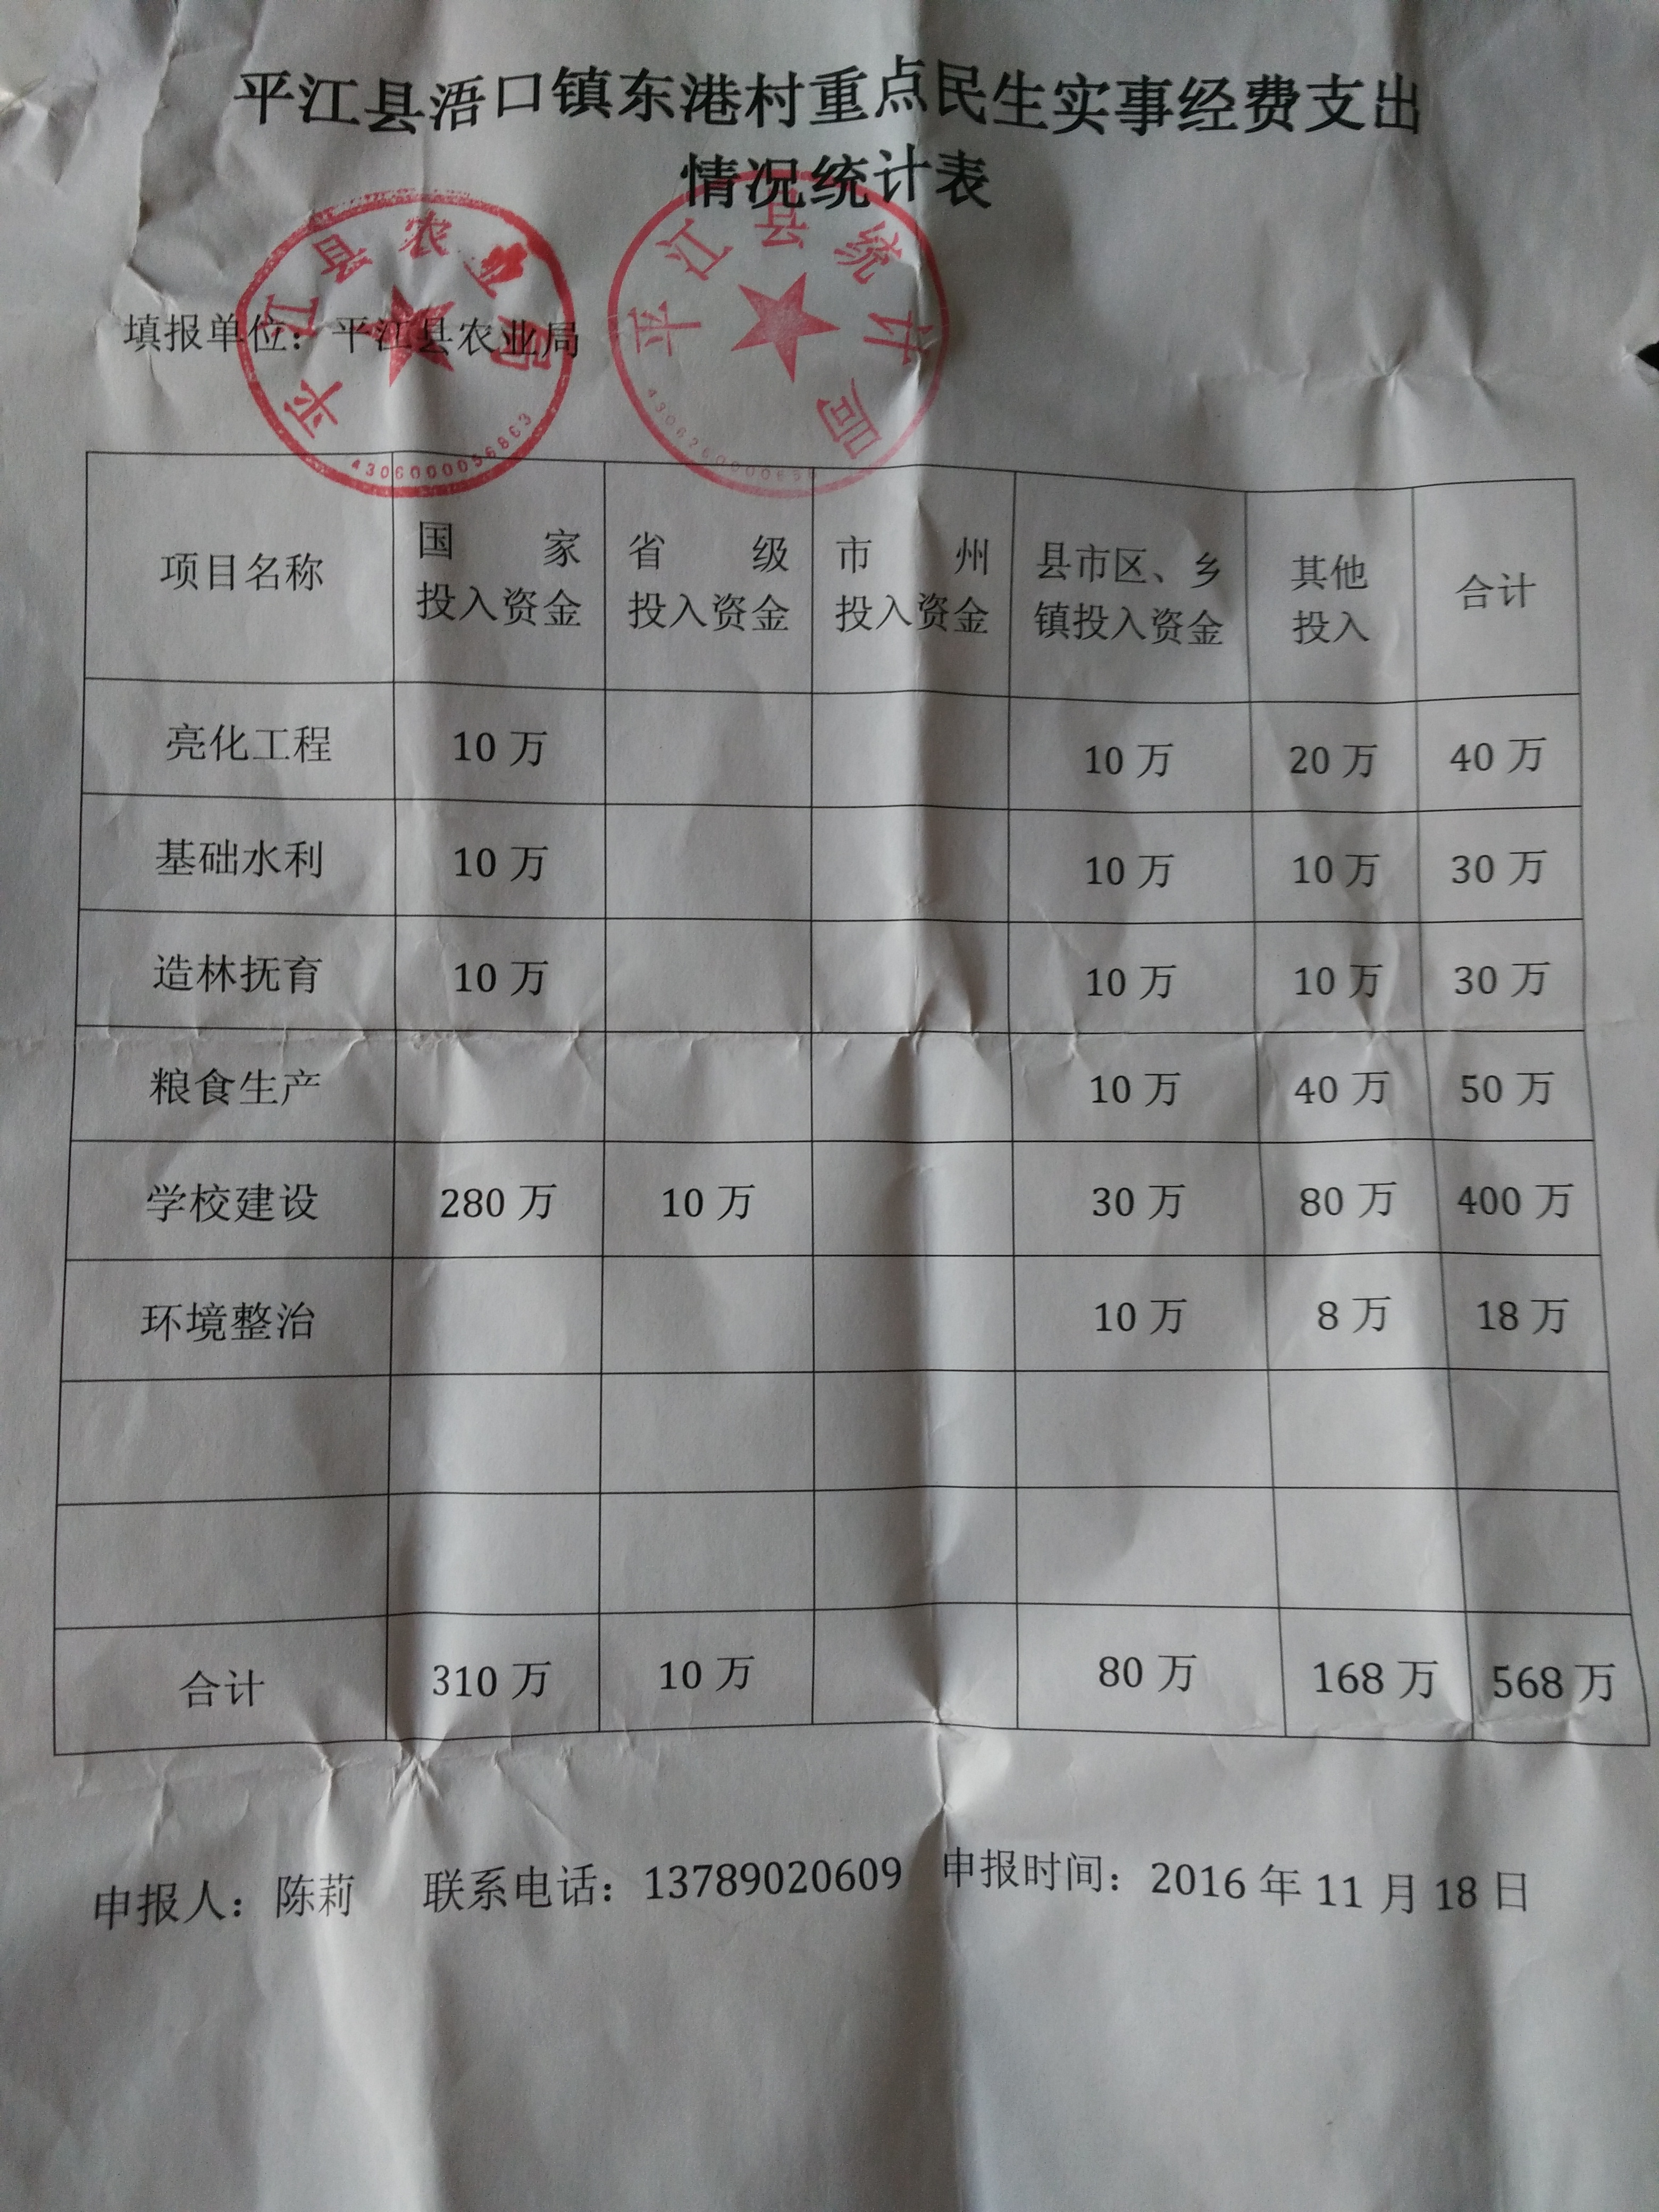 平江县浯口镇东港村重点民生实事经费支出
情况统计表
平江县农业局
4306000056863
平江县统计局
填报单位：平江县农业局
项目名称 国家投入资金 省级投入资金 市州投入资金 县市区、乡镇投入资金 其他投入 合计
亮化工程 10万 10万 20万 40万
基础水利 10万 10万 10万 30万
造林抚育 10万 10万 10万 30万
粮食生产 10万 40万 50万
学校建设 280万 10万 30万 80万 400万
环境整治 10万 8万 18万
合计 310万 10万 80万 168万 568万
申报人：陈莉 联系电话：13789020609 申报时间：2016年11月18日